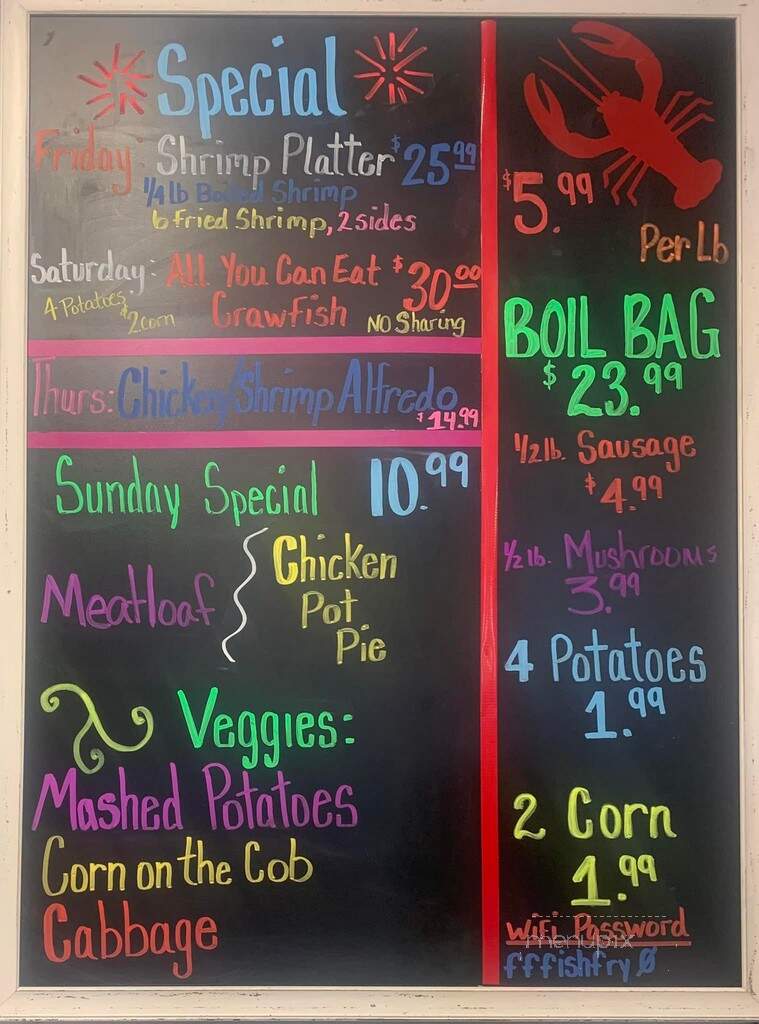 Special
Friday: Shrimp Platter $25.99
1/4 lb Boiled Shrimp
6 Fried Shrimp, 2 sides
Saturday: All You Can Eat $30.00
4 Potatoes, 2 corn Crawfish NO Sharing
Thurs: Chicken/Shrimp Alfredo
$14.99
Sunday Special 10.99
Meatloaf
Chicken
Pot
Pie
Veggies:
Mashed Potatoes
Corn on the Cob
Cabbage
$5.99
Per Lb
BOIL BAG
$23.99
1/2 lb. Sausage
$4.99
1/2 lb. Mushrooms
3.99
4 Potatoes
1.99
2 Corn
1.99
Wifi Password
menupix
fffishfry0